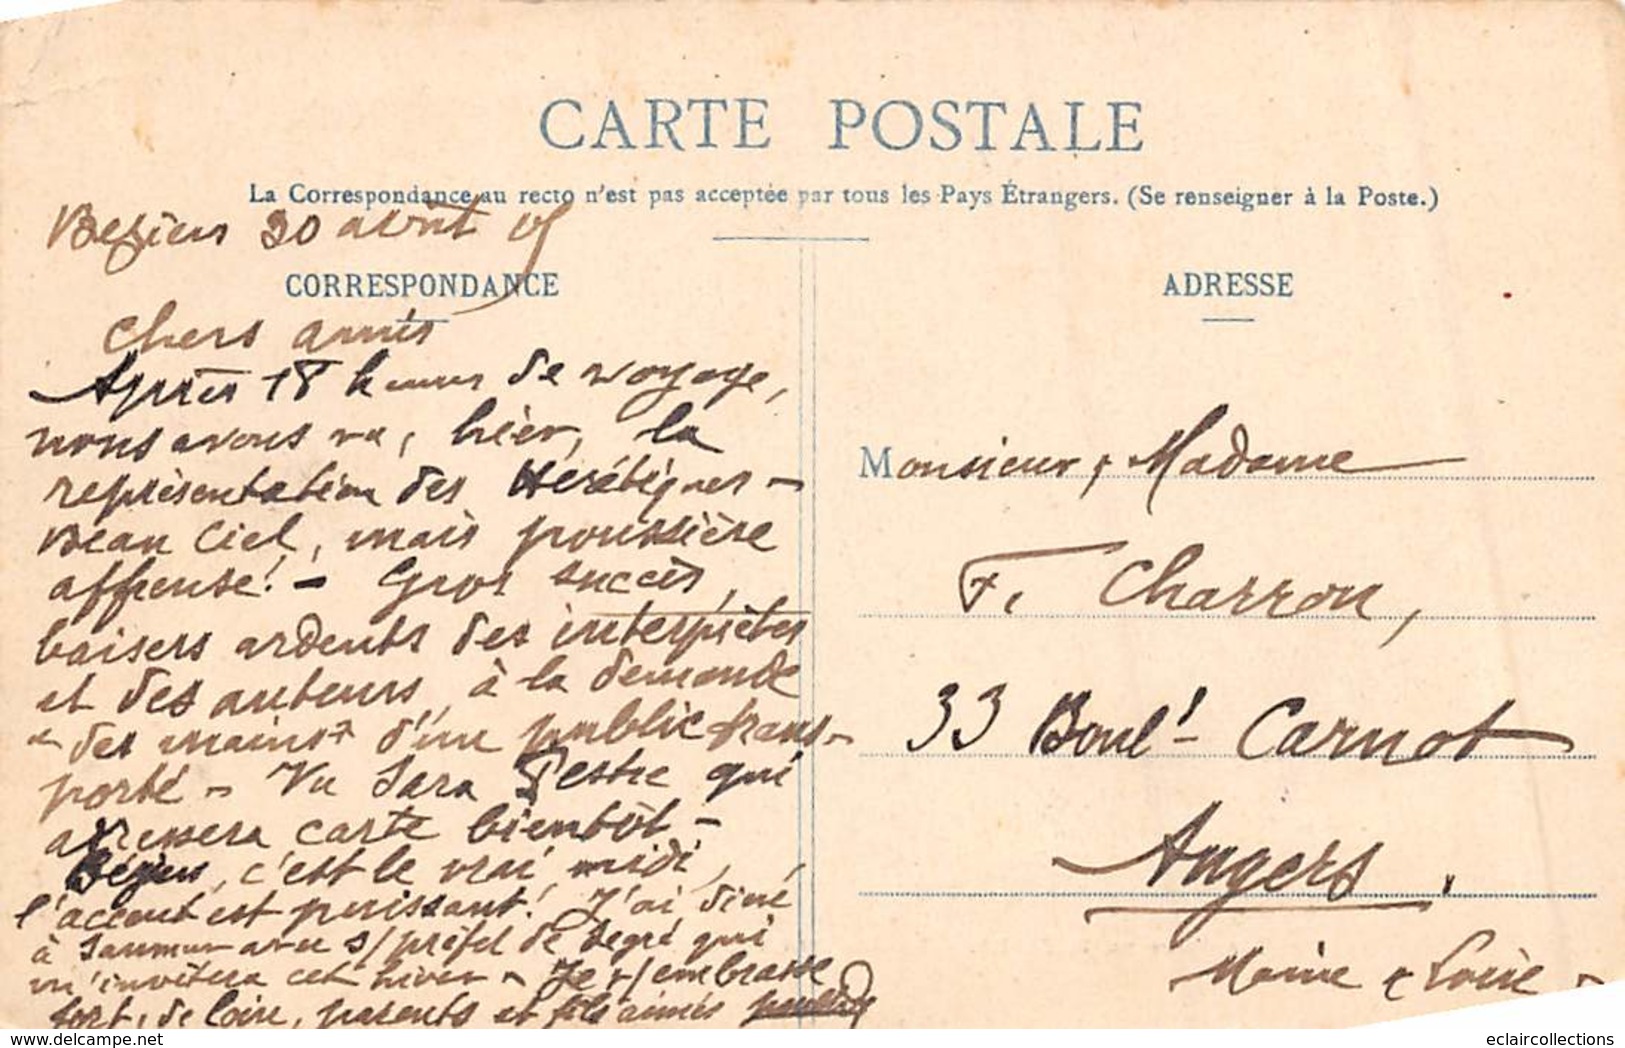 CARTE POSTALE
La Correspondance au recto n'est pas acceptée par tous les Pays Étrangers. (Se renseigner à la Poste.)
Beziers 30 août 05
CORRESPONDANCE
Chers amis
Après 18 heures de voyage,
nous avons vu, hièr, la
représentation des Hérétiques -
Beau Ciel, mais poussière
affreuse! - Gros succès,
baisers ardents des interprètes
et des auteurs, à la demande
"des mains" d'un public trans-
porté - Vu Sara Pestre qui
adressera carte bientôt -
Béziers, c'est le vrai midi,
l'accent est puissant! J'ai diné
à Saumur avec s/ préfet de Segré qui
m'invitera cet hiver - Je v/ embrasse
fort, de loin, parents et fils aimés
ADRESSE
Monsieur & Madame
F. Charron,
33 Boul^t Carnot
Angers.
Maine & Loire -
eclaircollections